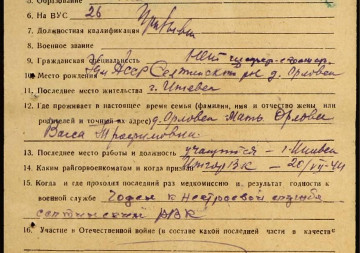 5. Образование
6. На ВУС 26
7. Должностная квалификация
8. Военное звание
9. Гражданская специальность Нет
10. Место рождения АССР Селтинский р-н д. Орловец
11. Последнее место жительства г. Ижевск
12. Где проживает в настоящее время семья (фамилия, имя и отчество жены или
родителей и точный их адрес) д. Орловец Мать Орловец
Васса Трофимовна
13. Последнее место работы и должность учащийся - г. Ижевск
14. Каким райгорвоенкоматом и когда призван РВК - 20/VII-44
15. Когда и где проходил последний раз медкомиссию и результат годности к
военной службе Годен к нестроевой службе
Селтинский РВК
16. Участие в Отечественной войне (в составе какой последней части в качестве